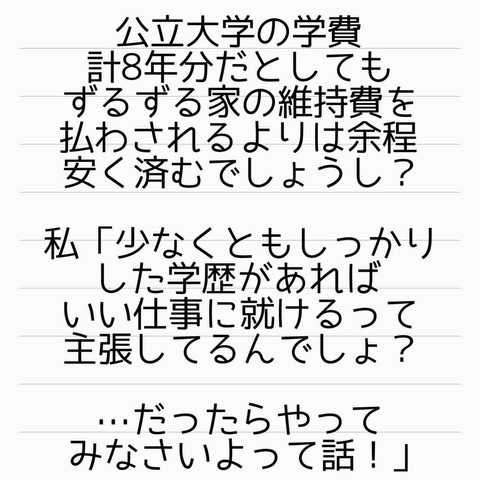 公立大学の学費
計8年分だとしても
ずるずる家の維持費を
払わされるよりは余程
安く済むでしょうし？
私「少なくともしっかり
した学歴があれば
いい仕事に就けるって
主張してるんでしょ？
…だったらやって
みなさいよって話！」